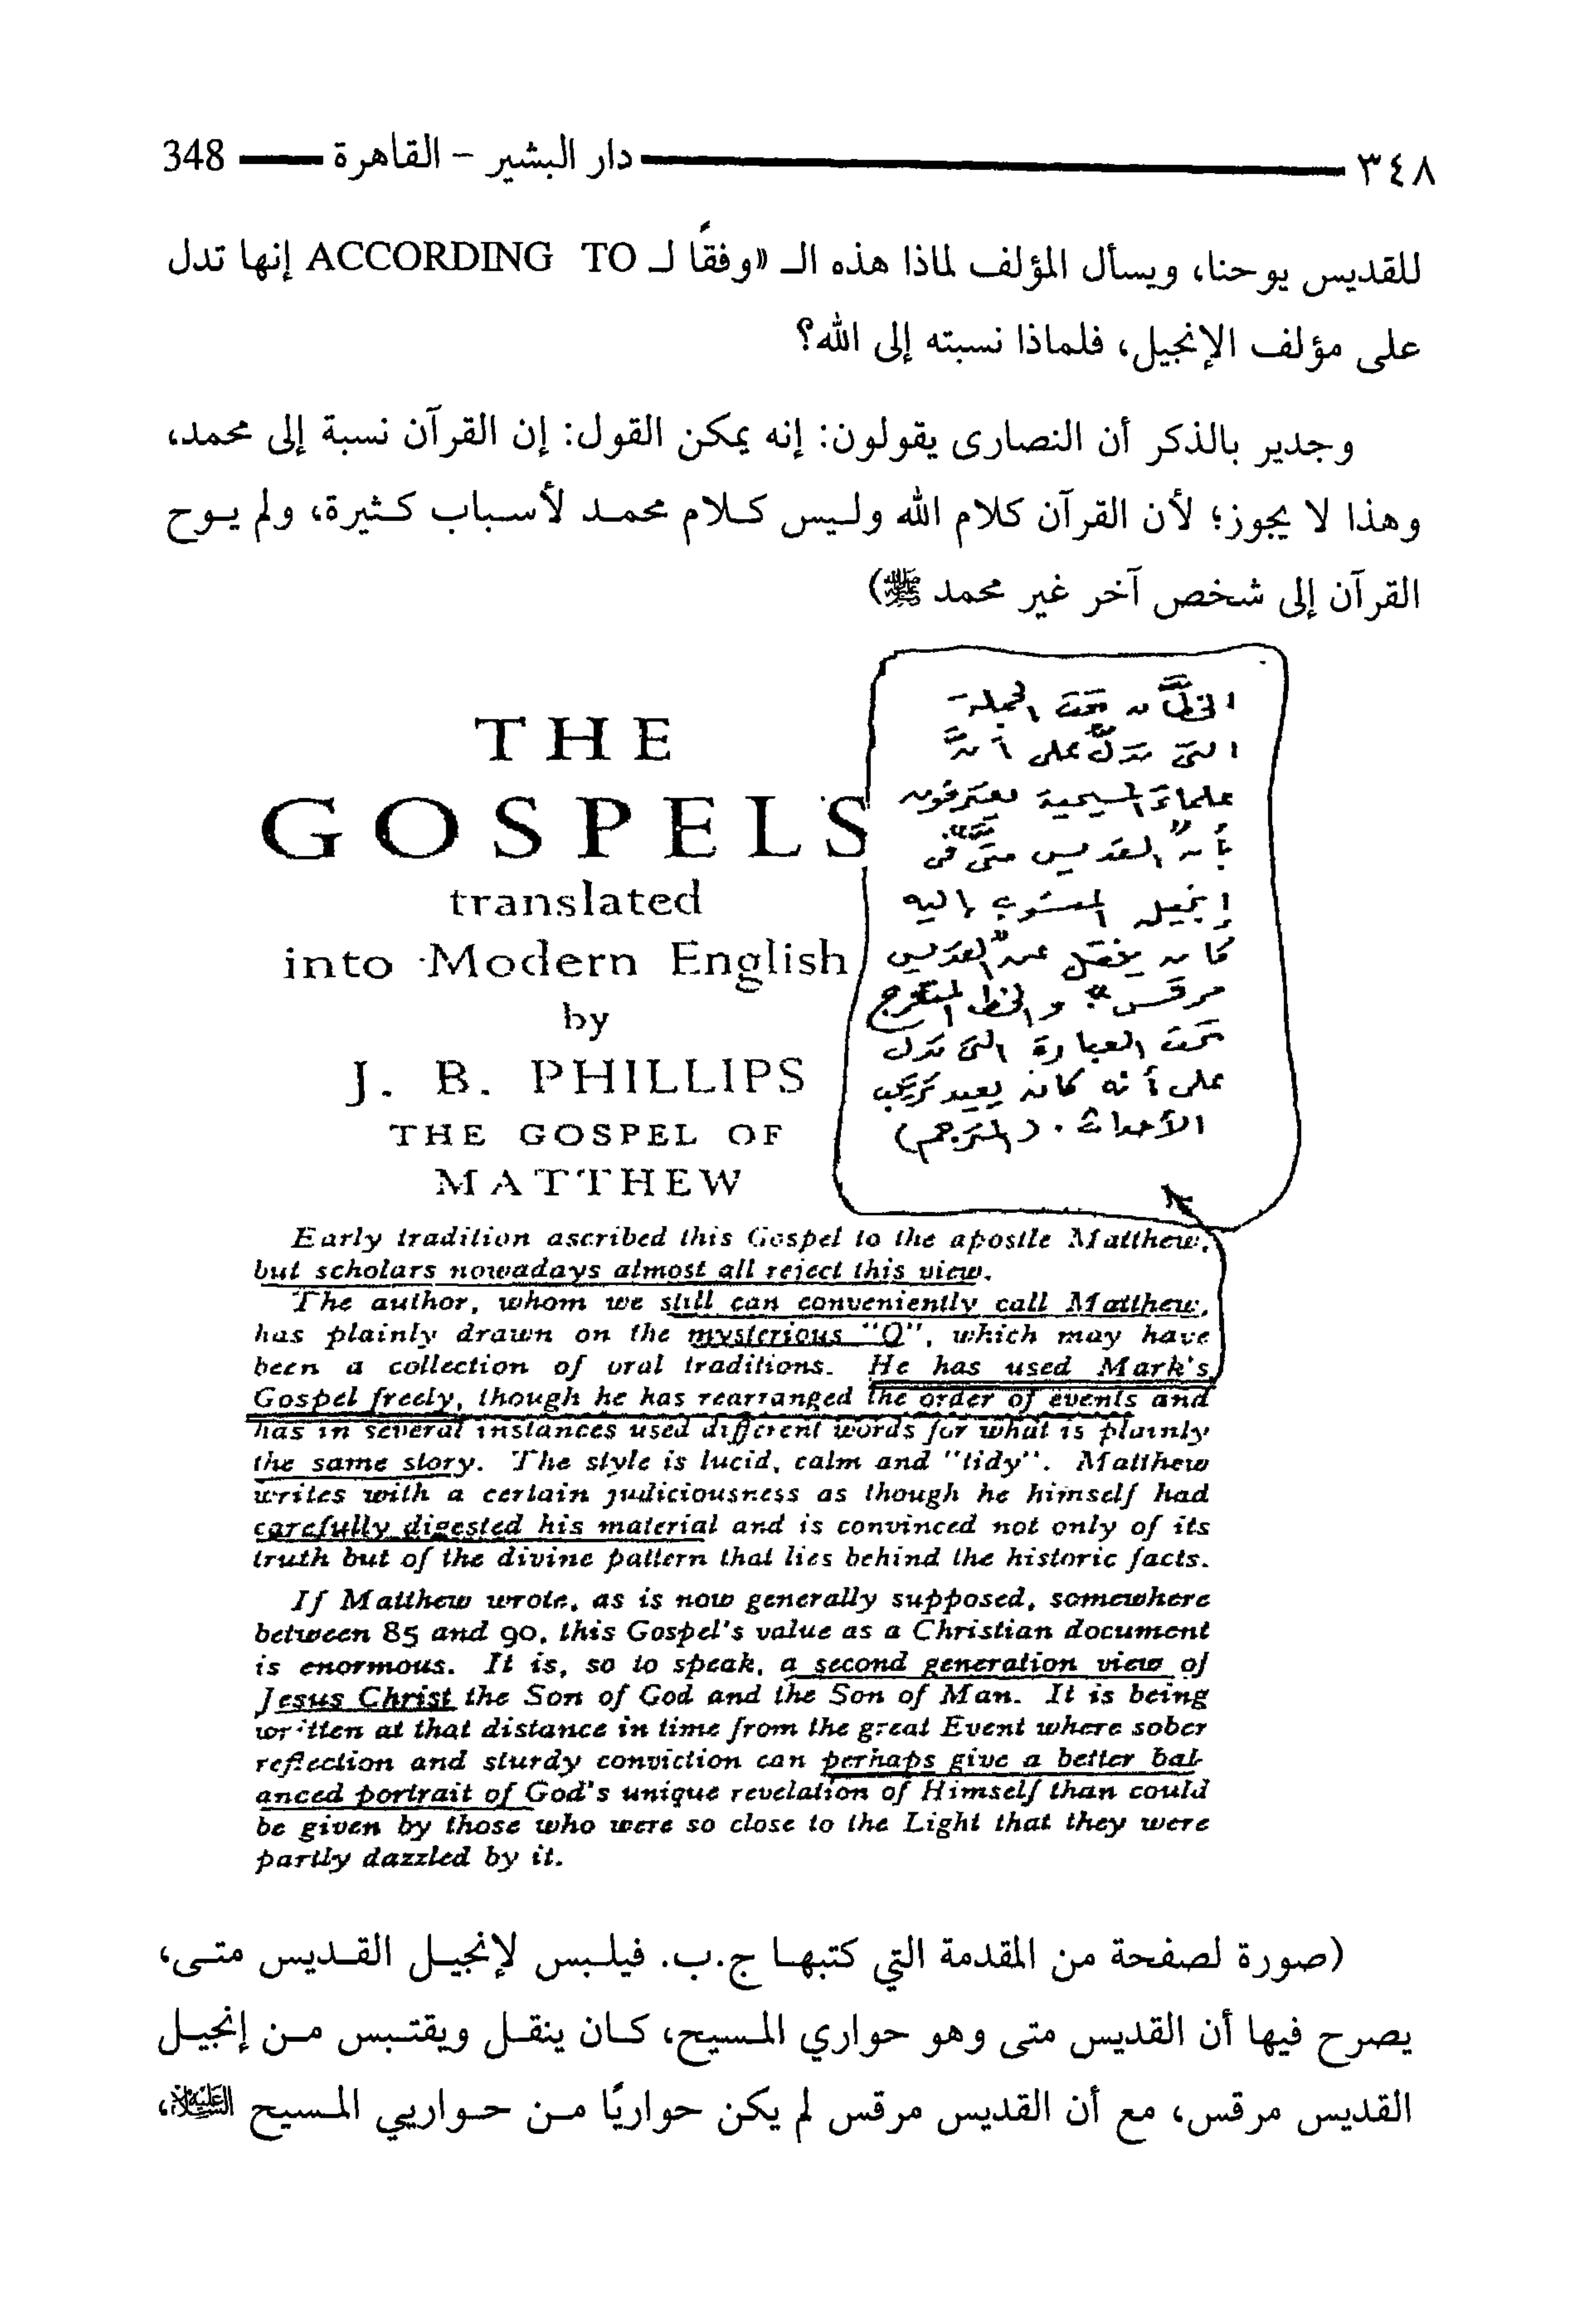 ٣٤٨ دار البشير - القاهرة 348
للقديس يوحنا، ويسأل المؤلف لماذا هذه الـ «وفقًا لـ ACCORDING TO إنها تدل
على مؤلف الإنجيل، فلماذا نسبته إلى الله؟
وجدير بالذكر أن النصارى يقولون: إنه يمكن القول: إن القرآن نسبة إلى محمد،
وهذا لا يجوز؛ لأن القرآن كلام الله وليس كلام محمد لأسباب كثيرة، ولم يوح
القرآن إلى شخص آخر غير محمد ﷺ)
الخطَّان تحت الجملة
التي تدلّ على أنَّ
علماءَ المسيحية يعترفون
بأن "القديس متَّى" في
إنجيله المنسوب إليه
كان ينقل عن "القديس
مرقس" والخط المتعرج
تحت العبارة التي تدل
على أنه كان يعيد ترتيب
الأحداث. (المترجم)
THE
GOSPELS
translated
into Modern English
by
J. B. PHILLIPS
THE GOSPEL OF
MATTHEW
Early tradition ascribed this Gospel to the apostle Matthew,
but scholars nowadays almost all reject this view.
The author, whom we still can conveniently call Matthew,
has plainly drawn on the mysterious "Q", which may have
been a collection of oral traditions. He has used Mark's
Gospel freely, though he has rearranged the order of events and
has in several instances used different words for what is plainly
the same story. The style is lucid, calm and "tidy". Matthew
writes with a certain judiciousness as though he himself had
carefully digested his material and is convinced not only of its
truth but of the divine pattern that lies behind the historic facts.
If Matthew wrote, as is now generally supposed, somewhere
between 85 and 90, this Gospel's value as a Christian document
is enormous. It is, so to speak, a second generation view of
Jesus Christ the Son of God and the Son of Man. It is being
written at that distance in time from the great Event where sober
reflection and sturdy conviction can perhaps give a better bal-
anced portrait of God's unique revelation of Himself than could
be given by those who were so close to the Light that they were
partly dazzled by it.
(صورة لصفحة من المقدمة التي كتبها ج.ب. فيلبس لإنجيل القديس متى،
يصرح فيها أن القديس متى وهو حواري المسيح، كان ينقل ويقتبس من إنجيل
القديس مرقس، مع أن القديس مرقس لم يكن حواريًا من حواريي المسيح عليه السلام،